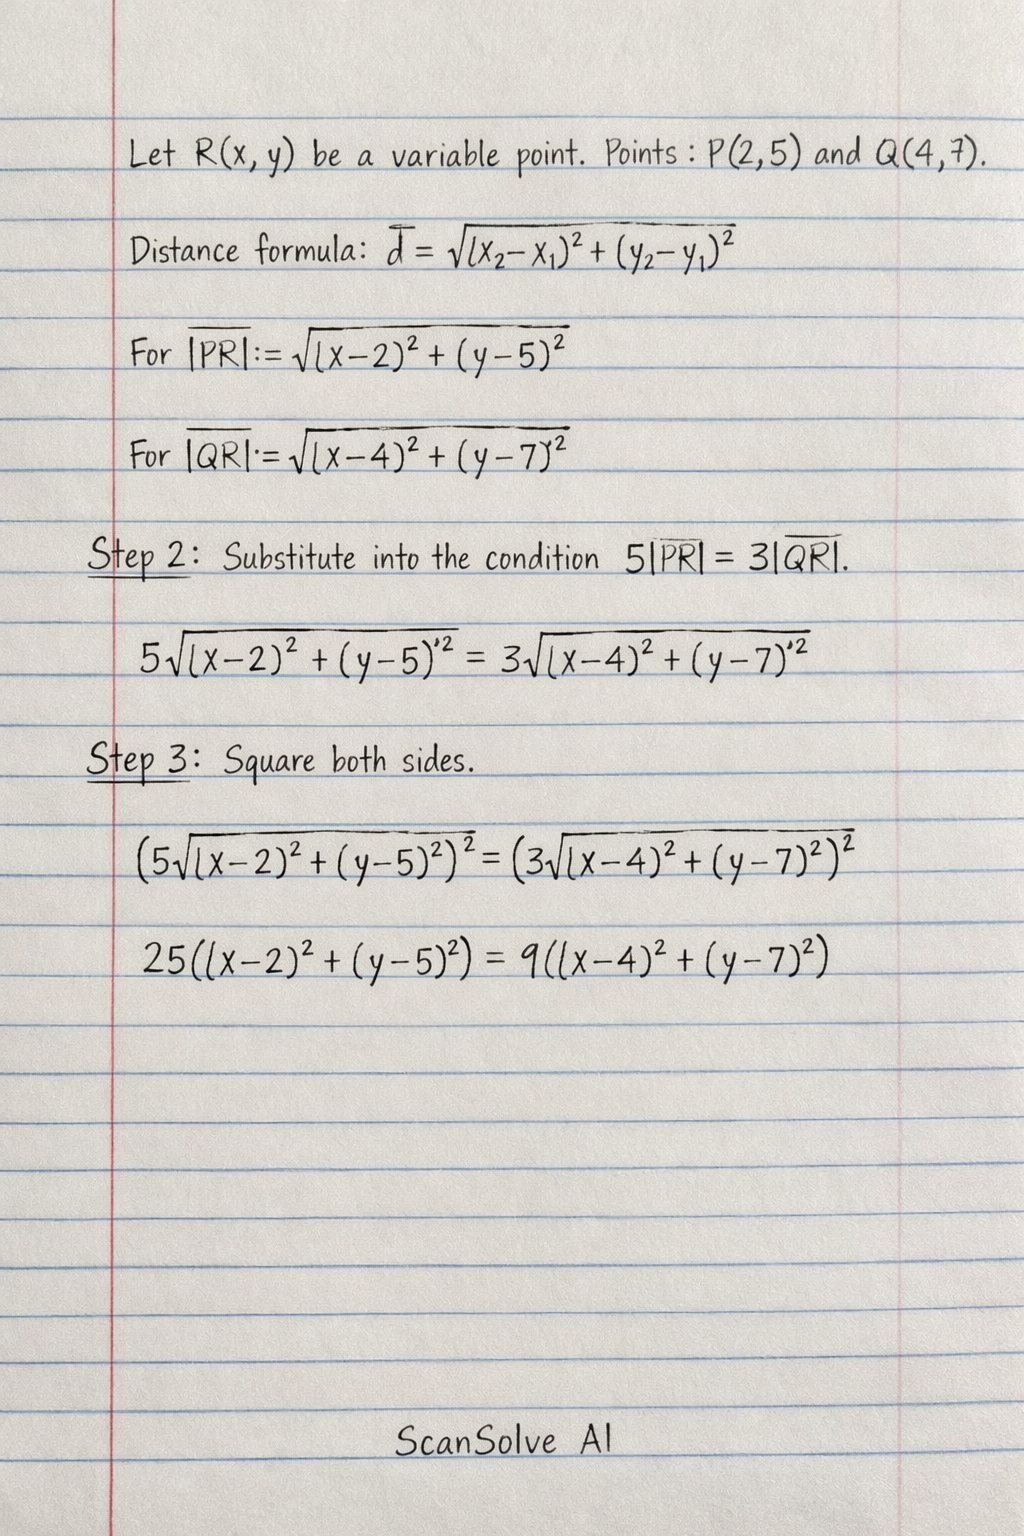 Let R(x, y) be a variable point. Points : P(2,5) and Q(4,7).
Distance formula: d̅ = √(x₂−x₁)² + (y₂−y₁)²
For |PR|:= √(x−2)² + (y−5)²
For |QR|·= √(x−4)² + (y−7)²
Step 2: Substitute into the condition 5|PR| = 3|QR|.
5√(x−2)² + (y−5)'² = 3√(x−4)² + (y−7)'²
Step 3: Square both sides.
(5√(x−2)² + (y−5)²)² = (3√(x−4)² + (y−7)²)²
25((x−2)² + (y−5)²) = 9((x−4)² + (y−7)²)
ScanSolve AI